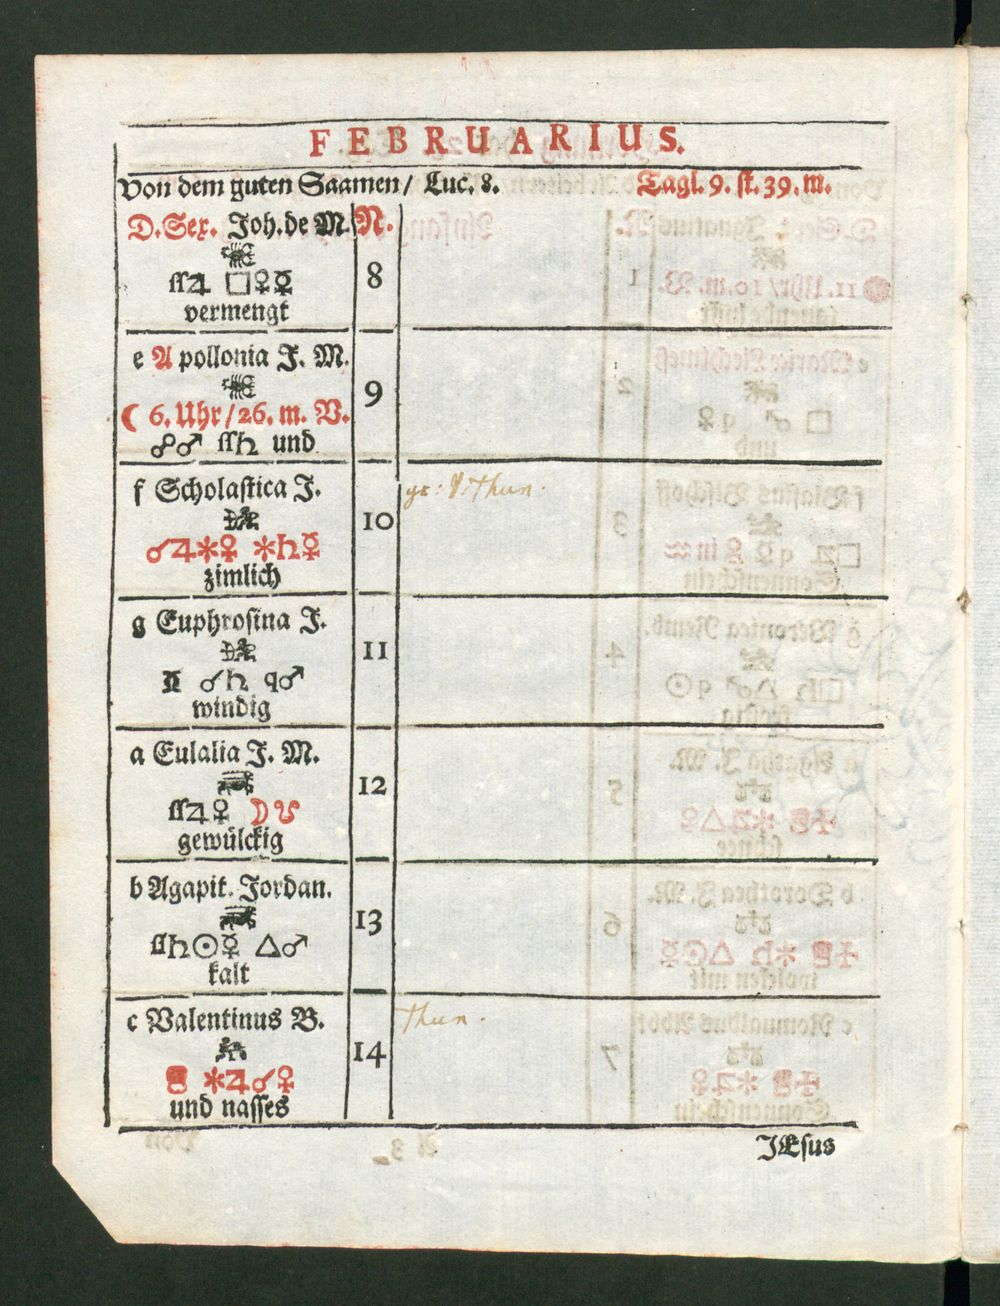 FEBRUARIUS.
Von dem guten Saamen/ Luc. 8. Tagl. 9. st. 39. m.
D. Sex. Joh. de M. N.
ſſ♃ □♀☿ 8
vermengt
e Apollonia J. M.
☾ 6. Uhr/26. m. V. 9
☍♂ ſſ♄ und
f Scholastica J.
10
☌♃✻♀ ✻♄☿
zimlich
g Euphrosina J.
11
☌♄ q♂
windig
a Eulalia J. M.
12
ſſ♃♀ ☽☋
gewülckig
b Agapit. Jordan.
13
ſſ♄☉☿ △♂
kalt
c Valentinus B. Thun.
14
✻♃☌♀
und nasses
JEsus